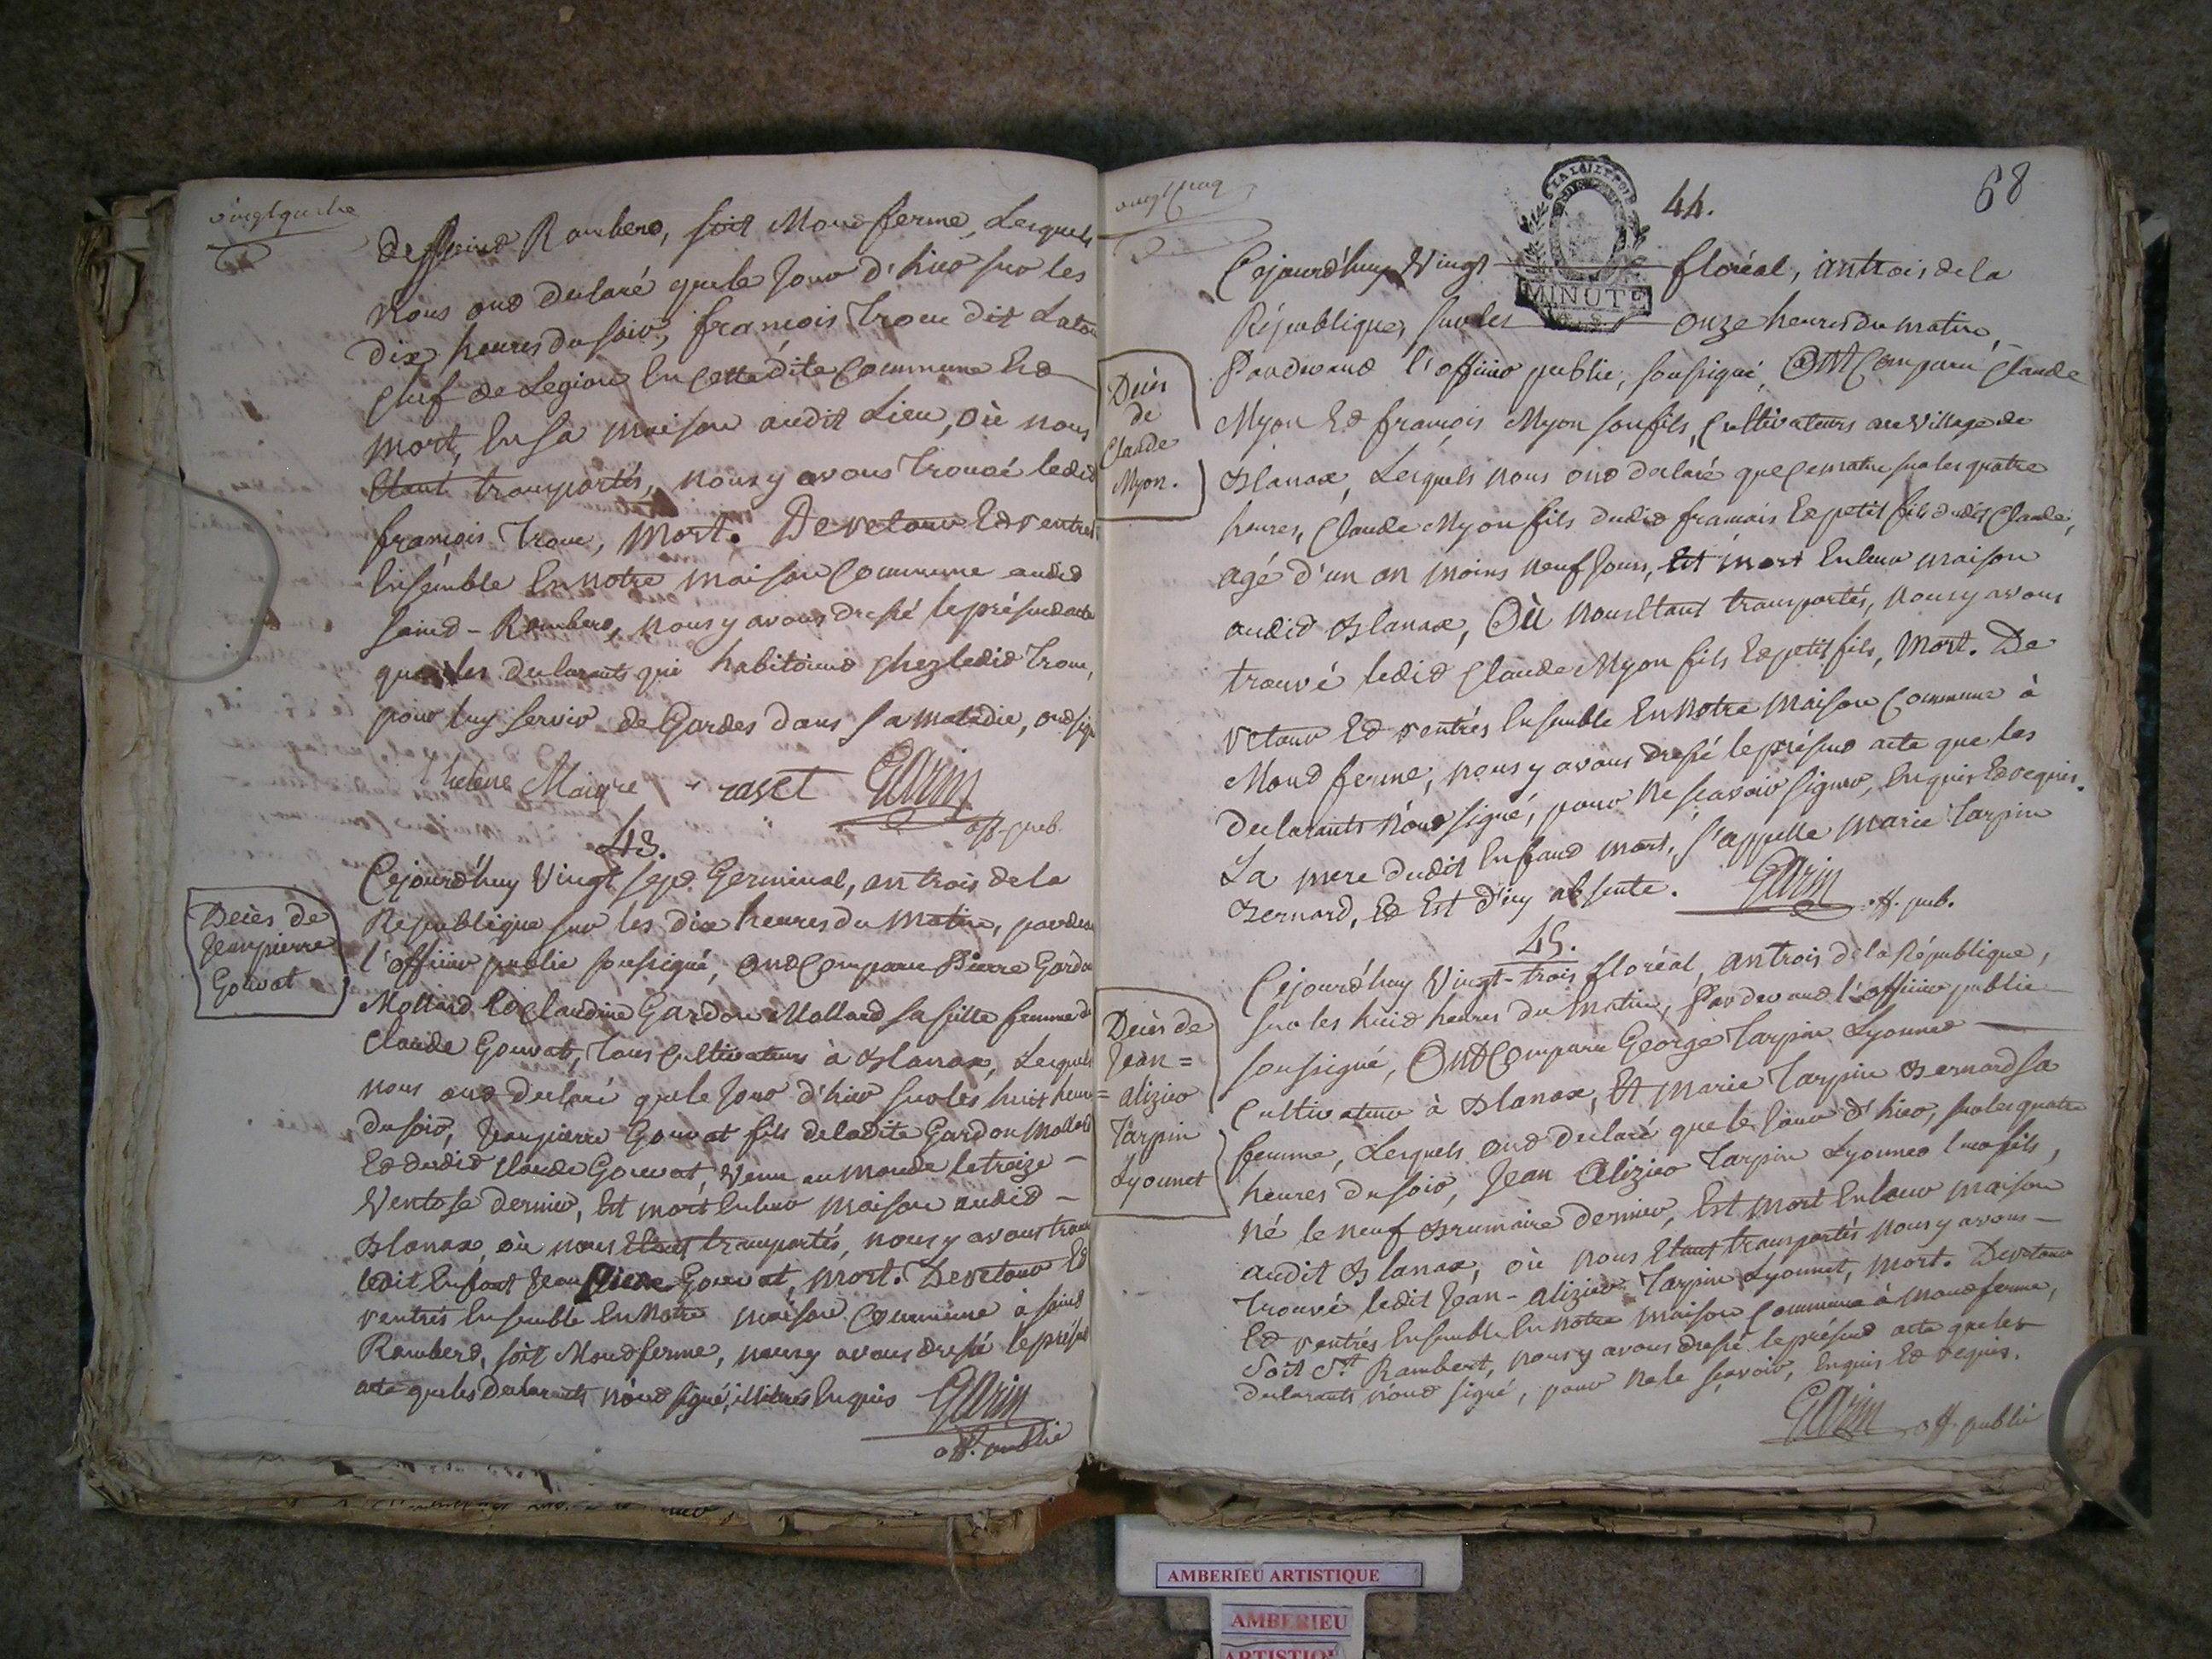 vingt quatre
de Saint Rambert, soit Montferme, Lesquels
nous ont declaré que le Jour d'hier sur les
dix heures du soir, françois Trouc dit Laton
chef de Legion En cette dite Commune Est
mort, En sa maison audit Lieu, où nous
Etant transportés, nous y avons trouvé ledit
françois Trouc, Mort. De retour Et rentrés
Ensemble En notre maison Commune audit
saint-Rambert, nous y avons dressé le présent acte
que les declarants qui habitoient chez ledit Trouc,
pour luy servir de Gardes dans sa maladie, ont signé
helene Maigre raset GArin
off. pub.
43.
Décès de
Jean pierre
Gouvat
Cejourd'huy Vingt sept Germinal, an trois de la
Republique sur les dix heures du matin, pardevant
l'officier public soussigné, ont Comparu Pierre Gardon
Mollard Et Claudine Gardon Mollard sa fille femme de
Claude Gouvat, tous Cultivateurs à Blanax, Lesquels
nous ont declaré que le Jour d'hier sur les huit heures
du soir, Jean pierre Gouvat fils de ladite Gardon Mollard
Et dudit Claude Gouvat, venu au monde le treize
Ventose dernier, Est mort En leur maison audit
Blanax, où nous Etant transportés, nous y avons trouvé
ledit Enfant Jean Pierre Gouvat, mort. De retour Et
rentrés Ensemble En notre maison Commune à saint
Rambert, soit Montferme, nous y avons dressé le présent
acte que les declarants n'ont signé, illitérés Enquis GArin
off. public
vingt cinq
LA LOI LE ROI
MINUTE
44.
68
Décès
de
Claude
Myon.
Cejourd'huy Vingt floréal, an trois de la
République, sur les onze heures du matin,
Pardevant l'officier public, soussigné, Ont Comparu Claude
Myon Et françois Myon son fils, Cultivateurs au Village de
Blanax, Lesquels nous ont declaré que ce matin sur les quatre
heures, Claude Myon fils dudit francois Et petit fils dudit Claude,
agé d'un an moins neuf Jours, Est mort En leur maison
audit Blanax, Où nous Etant transportés, nous y avons
trouvé ledit Claude Myon fils Et petit fils, Mort. De
retour Et rentrés Ensemble En notre maison Commune à
Montferme, nous y avons dressé le présent acte que les
declarants n'ont signé, pour ne sçavoir signer, Enquis Et requis.
La mere dudit Enfant mort, s'appelle Marie Tarpin
Bernard, Et Est d'icy absente. GArin off. pub.
45.
Décès de
Jean=
=alizier
Tarpin
Lyonnet
Cejourd'huy Vingt-trois floréal, an trois de la République,
sur les huit heures du matin, Pardevant l'officier public
soussigné, Ont Comparu George Tarpin Lyonnet
Cultivateur à Blanax, Et Marie Tarpin Bernard sa
femme, Lesquels ont declaré que le Jour d'hier, sur les quatre
heures du soir, Jean Alizier Tarpin Lyonnet leur fils,
né le neuf Brumaire dernier, Est mort En leur maison
audit Blanax, où nous Etant transportés nous y avons
trouvé ledit Jean-alizier Tarpin Lyonnet, mort. De retour
Et rentrés Ensemble En notre maison Commune à Montferme,
Soit St. Rambert, nous y avons dressé le présent acte que les
declarants n'ont signé, pour ne le sçavoir, Enquis Et requis.
GArin off. public
AMBERIEU ARTISTIQUE
AMBERIEU
ARTISTIQUE